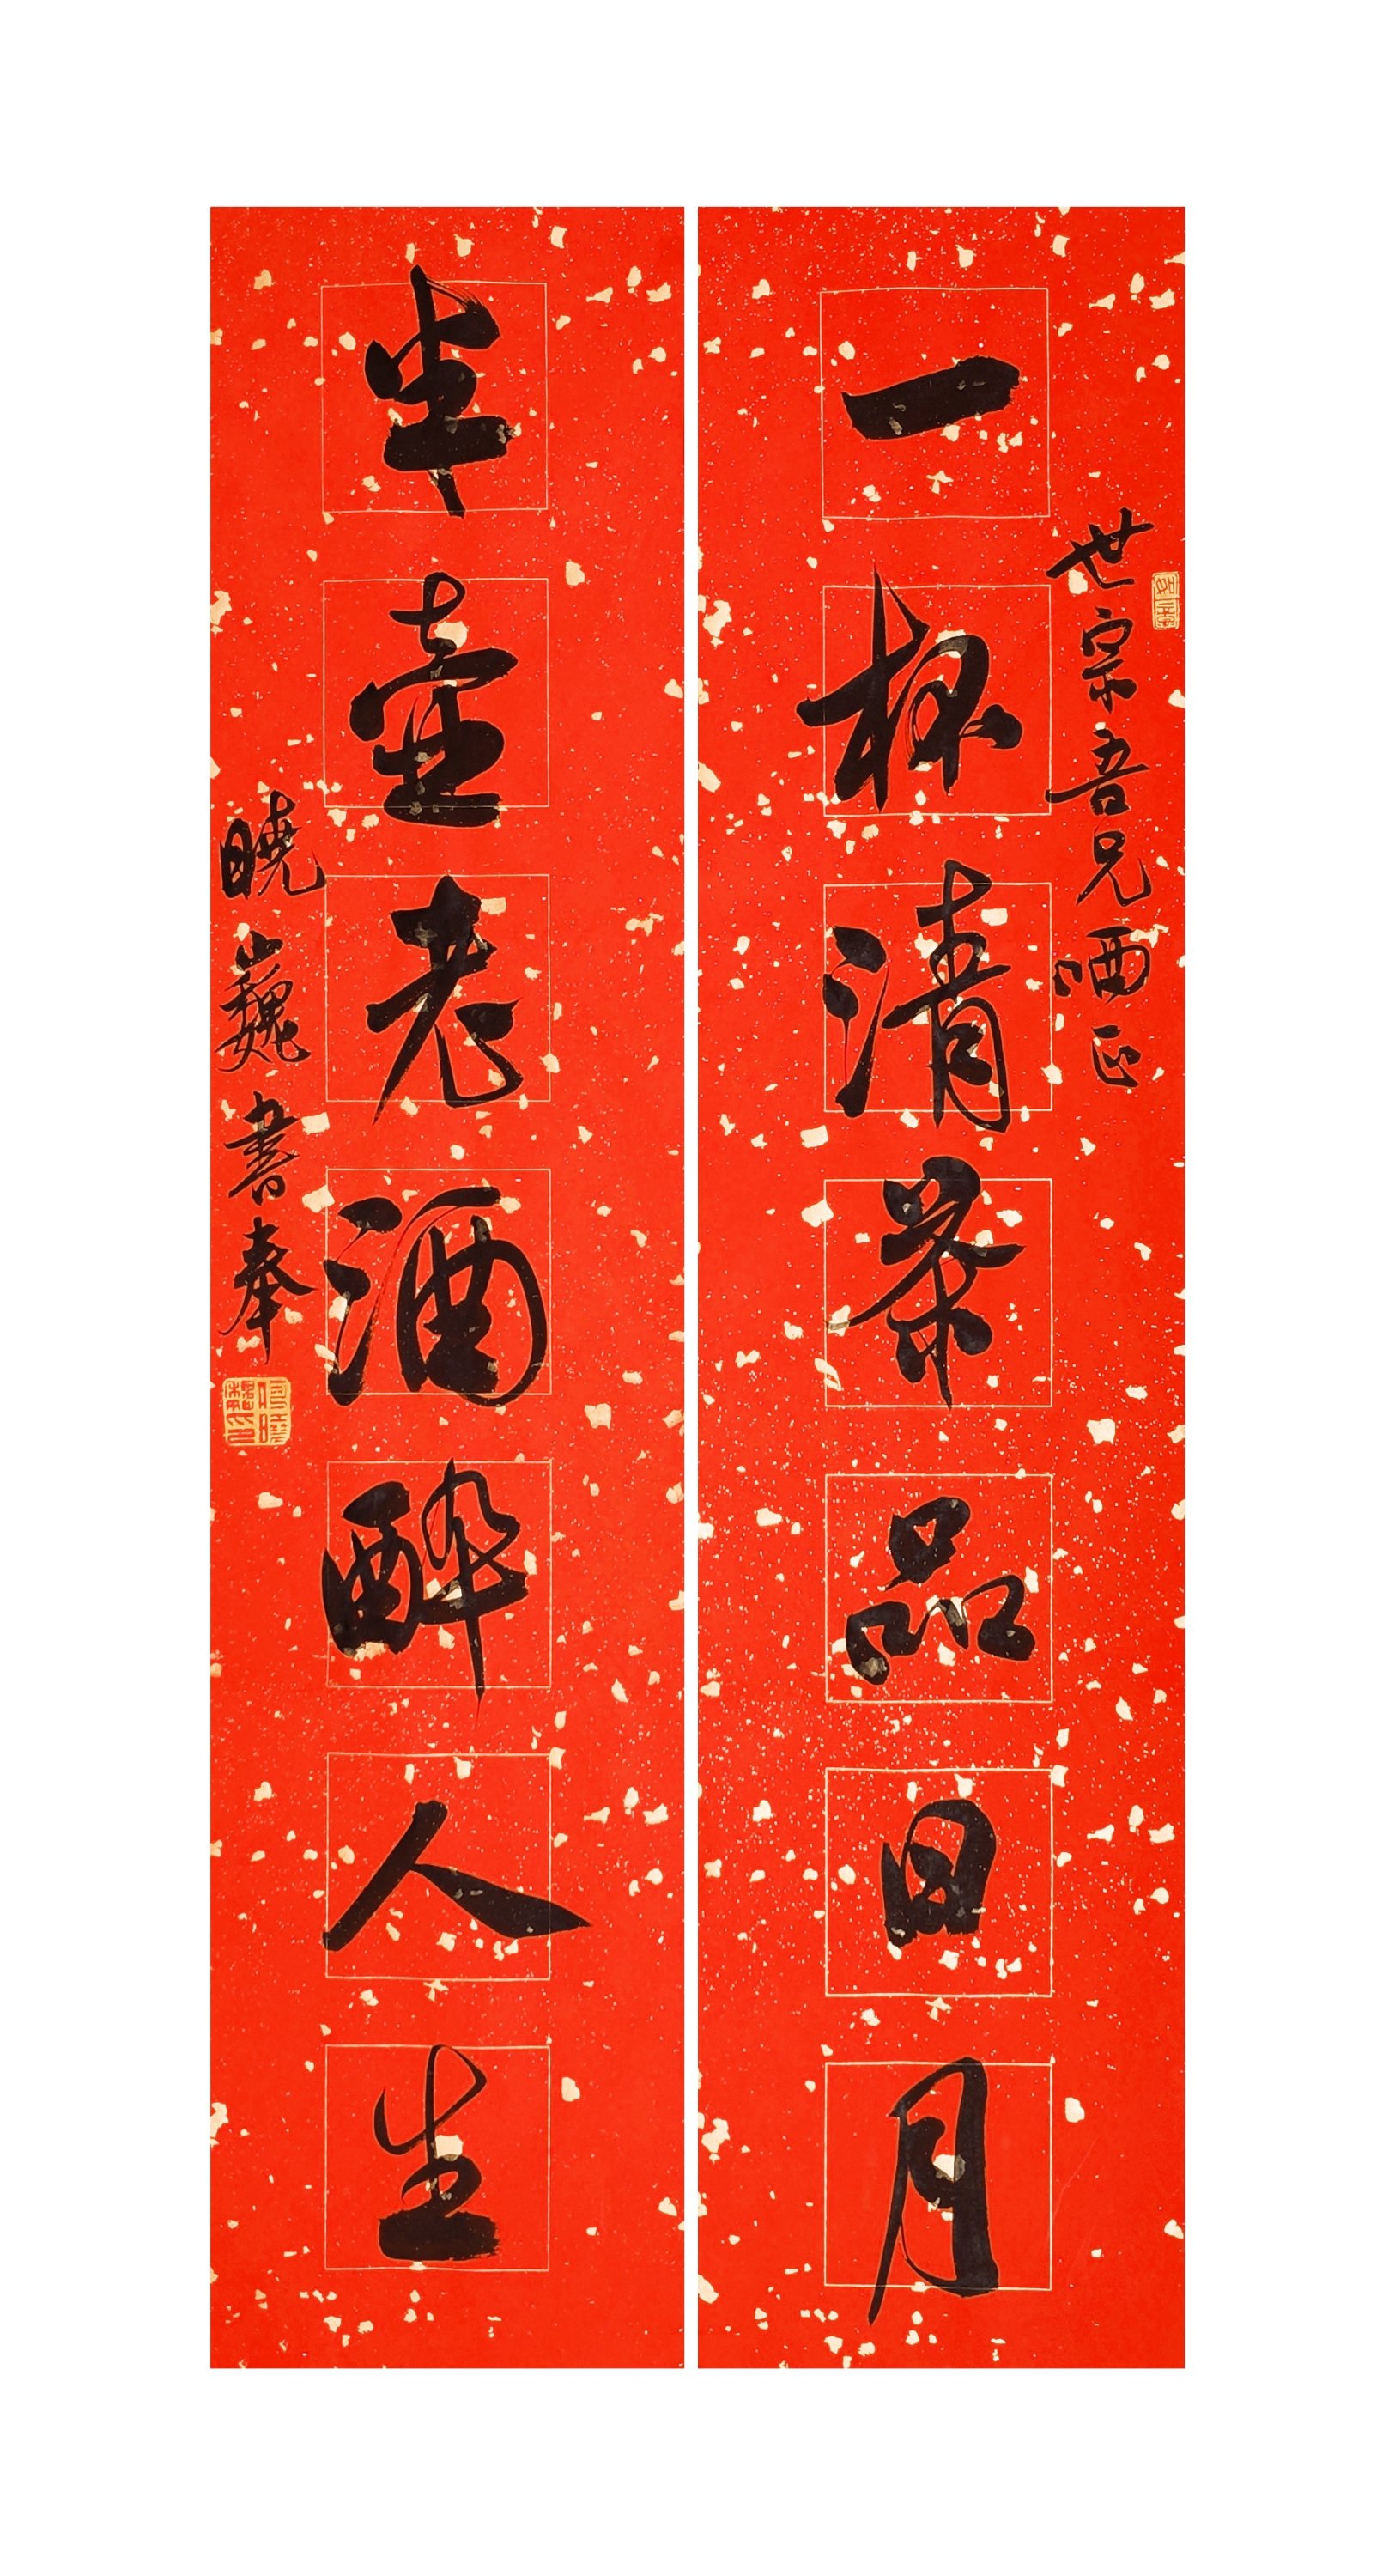 世宗吾兄哂正
一杯清茶品日月
半壶老酒醉人生
曉巍書奉